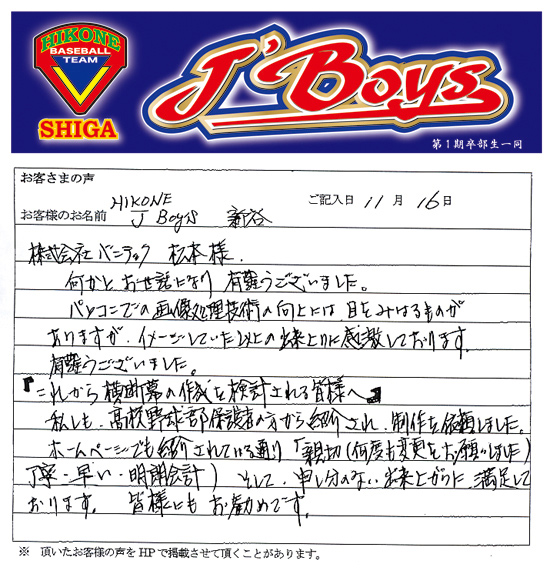 HIKONE
BASEBALL
TEAM
SHIGA
J'Boys
第1期卒部生一同
お客さまの声
ご記入日 11月 16日
お客様のお名前 HIKONE J Boys 新谷
株式会社バンテック 松本様.
何かと、お世話になり 有難うございました。
パソコンでの画像処理技術の向上には 目をみはるものが
ありますが、イメージしていた以上の出来上りに感激しております。
有難うございました。
『これから横断幕の作成を検討される皆様へ』
私しも、高校野球部保護者の方から紹介され、制作を依頼しました。
ホームページでも紹介されている通り「親切(何度も変更をお願いしました)
丁寧・早い・明朗会計) そして、申し分のない出来上がりに、満足して
おります。 皆様にも お勧めです。
※ 頂いたお客様の声をHPで掲載させて頂くことがあります。